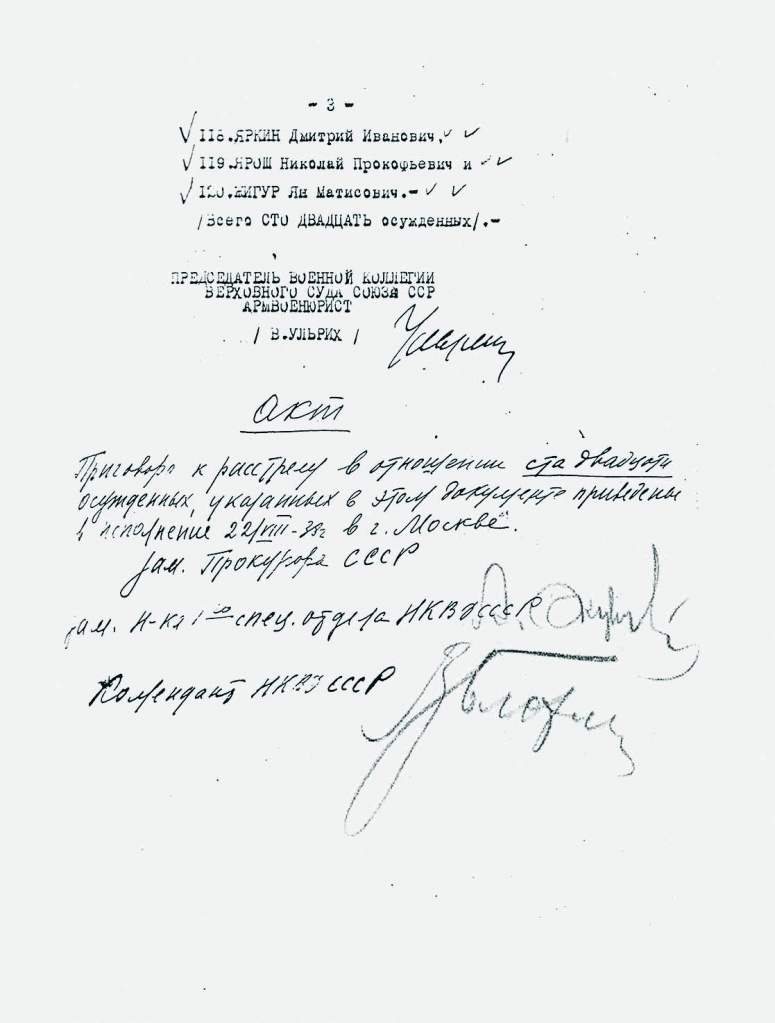 - 3 -
118.ЯРКИН Дмитрий Иванович,
119.ЯРОШ Николай Прокофьевич и
120.ЖИГУР Ян Матисович.-
/Всего СТО ДВАДЦАТЬ осужденных/.-
ПРЕДСЕДАТЕЛЬ ВОЕННОЙ КОЛЛЕГИИ
ВЕРХОВНОГО СУДА СОЮЗА ССР
АРМВОЕНЮРИСТ
/ В.УЛЬРИХ /
Акт
Приговора к расстрелу в отношении ста двадцати
осужденных, указанных в этом документе приведены
в исполнение 22/VIII-38г в г. Москве.
Зам. Прокурора СССР
Зам. Н-ка 1го спец. отдела НКВД СССР
Комендант НКВД СССР